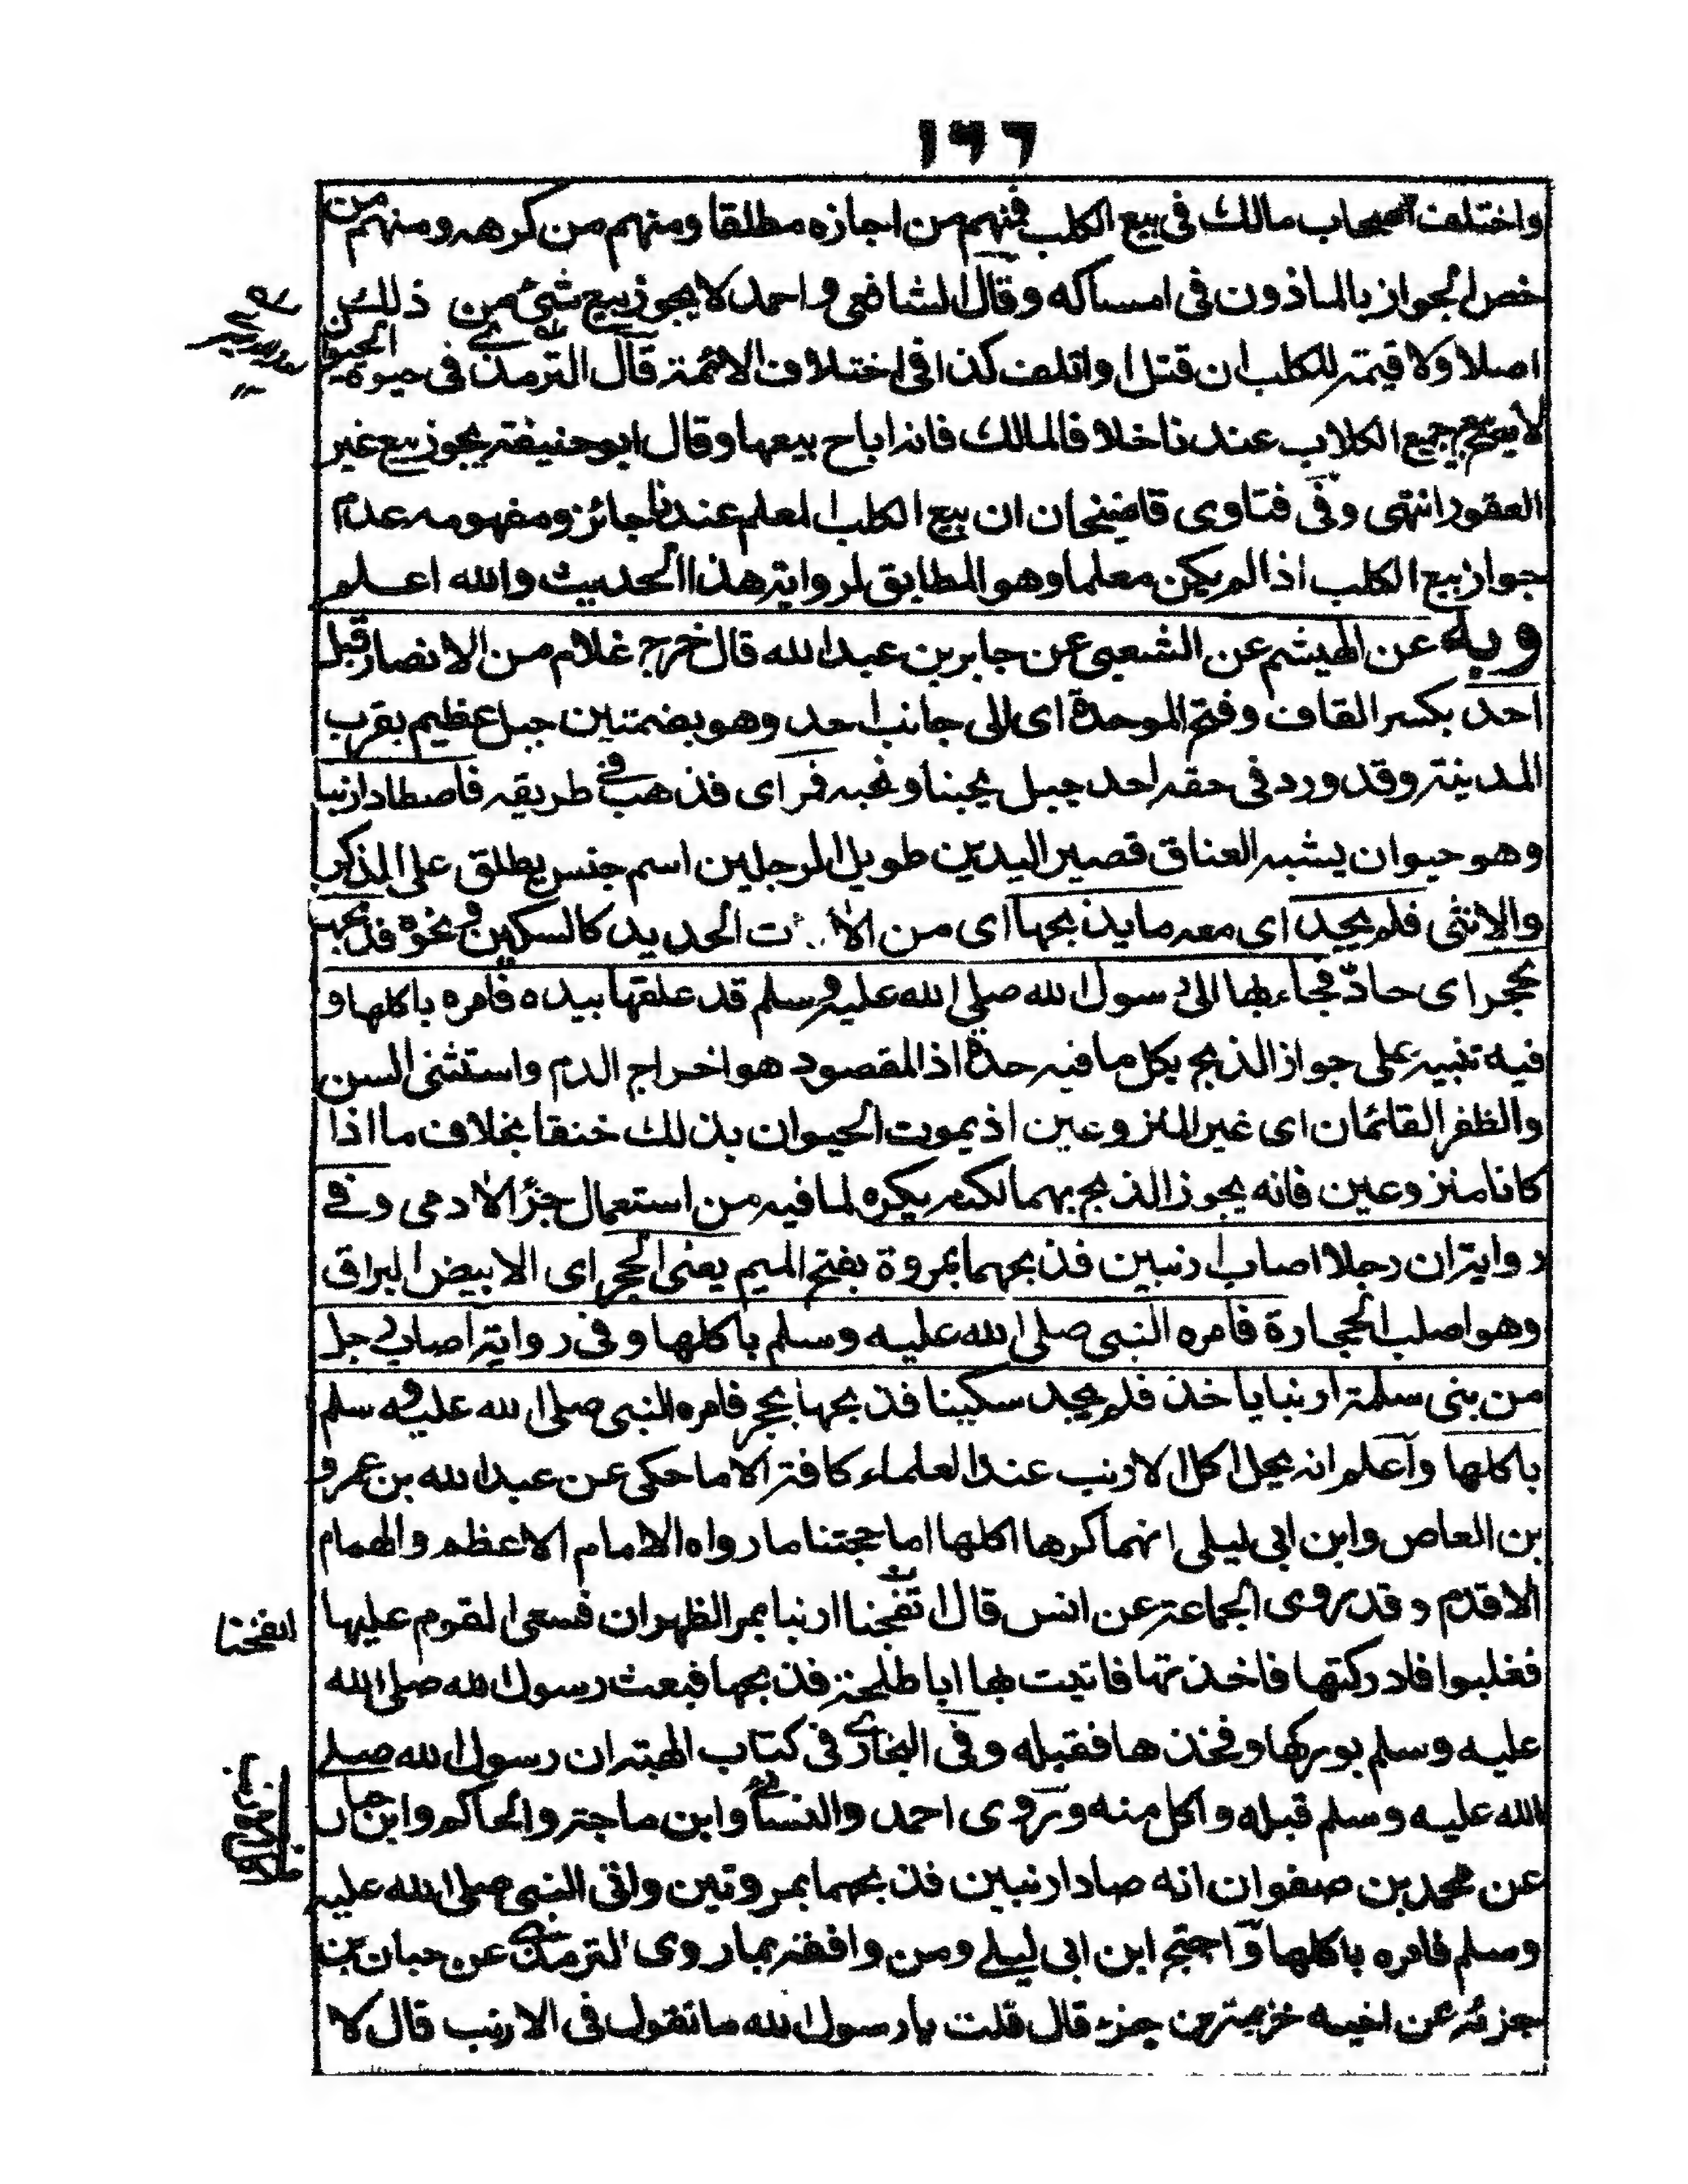 ١٦٦
واختلف اصحاب مالك فى بيع الكلب فمنهم من اجازه مطلقا ومنهم من كرهه ومنهم من
خص الجواز بالماذون فى امساكه وقال الشافعى واحمد لا يجوز بيع شئ من ذلك
اصلا ولا قيمة للكلب ان قتل او اتلف كذا فى اختلاف الائمة قال الترمذى فى حيوة الحيوان
لا يصح بيع جميع الكلاب عندنا خلافا لمالك فانه اباح بيعها وقال ابو حنيفة يجوز بيع غير
العقور انتهى وفى فتاوى قاضيخان ان بيع الكلب المعلم عندنا جائز ومفهومه عدم
جواز بيع الكلب اذا لم يكن معلما وهو المطابق لرواية هذا الحديث والله اعلم
وبه عن الهيثم عن الشعبى عن جابر بن عبد الله قال خرج غلام من الانصار قبل
احد بكسر القاف وفتح الموحدة اى الى جانب احد وهو بضمتين جبل عظيم بقرب
المدينة وقد ورد فى حقه احد جبل يحبنا ونحبه فمر اى فذهب فى طريقه فاصطاد ارنبا
وهو حيوان يشبه العناق قصير اليدين طويل الرجلين اسم جنس يطلق على الذكر
والانثى فلم يجد اى معه ما يذبحها اى من الات الحديد كالسكين ونحوه فذبحها
بحجر اى حاد فجاء بها الى رسول الله صلى الله عليه وسلم قد علقها بيده فامره باكلها و
فيه تنبيه على جواز الذبح بكل ما فيه حدة اذ المقصود هو اخراج الدم واستثنى السن
والظفر القائمان اى غير المنزوعين اذ يموت الحيوان بذلك خنقا بخلاف ما اذا
كانا منزوعين فانه يجوز الذبح بهما لكنه يكره لما فيه من استعمال جزء الادمى وفى
رواية ان رجلا اصاب ارنبين فذبحهما بمروة بفتح الميم يعنى الحجر اى الابيض البراق
وهو اصلب الحجارة فامره النبى صلى الله عليه وسلم باكلها وفى رواية اصاب رجل
من بنى سلمة ارنبا ياخذ فلم يجد سكينا فذبحها بحجر فامره النبى صلى الله عليه وسلم
باكلها واعلم انه يحل اكل الارنب عند العلماء كافة الا ما حكى عن عبد الله بن عمرو
بن العاص وابن ابى ليلى انهما كرها اكلها اما حجتنا ما رواه الامام الاعظم والهمام
الاقدم وقد روى الجماعة عن انس قال انفجنا ارنبا بمر الظهران فسعى القوم عليها
انفجنا
فغلبوا فادركتها فاخذتها فاتيت بها ابا طلحة فذبحها فبعث رسول الله صلى الله
عليه وسلم بوركها وفخذها فقبله وفى البخارى فى كتاب الهبة ان رسول الله صلى
الله عليه وسلم قبله واكل منه وروى احمد والنسائى وابن ماجة والحاكم وابن حبان
عن محمد بن صفوان انه صاد ارنبين فذبحهما بمروتين واتى النبى صلى الله عليه
وسلم فامره باكلها واحتج ابن ابى ليلى ومن وافقه بما روى الترمذى عن حبان بن
جزء عن اخيه خزيمة بن جزء قال قلت يا رسول الله ما تقول فى الارنب قال لا